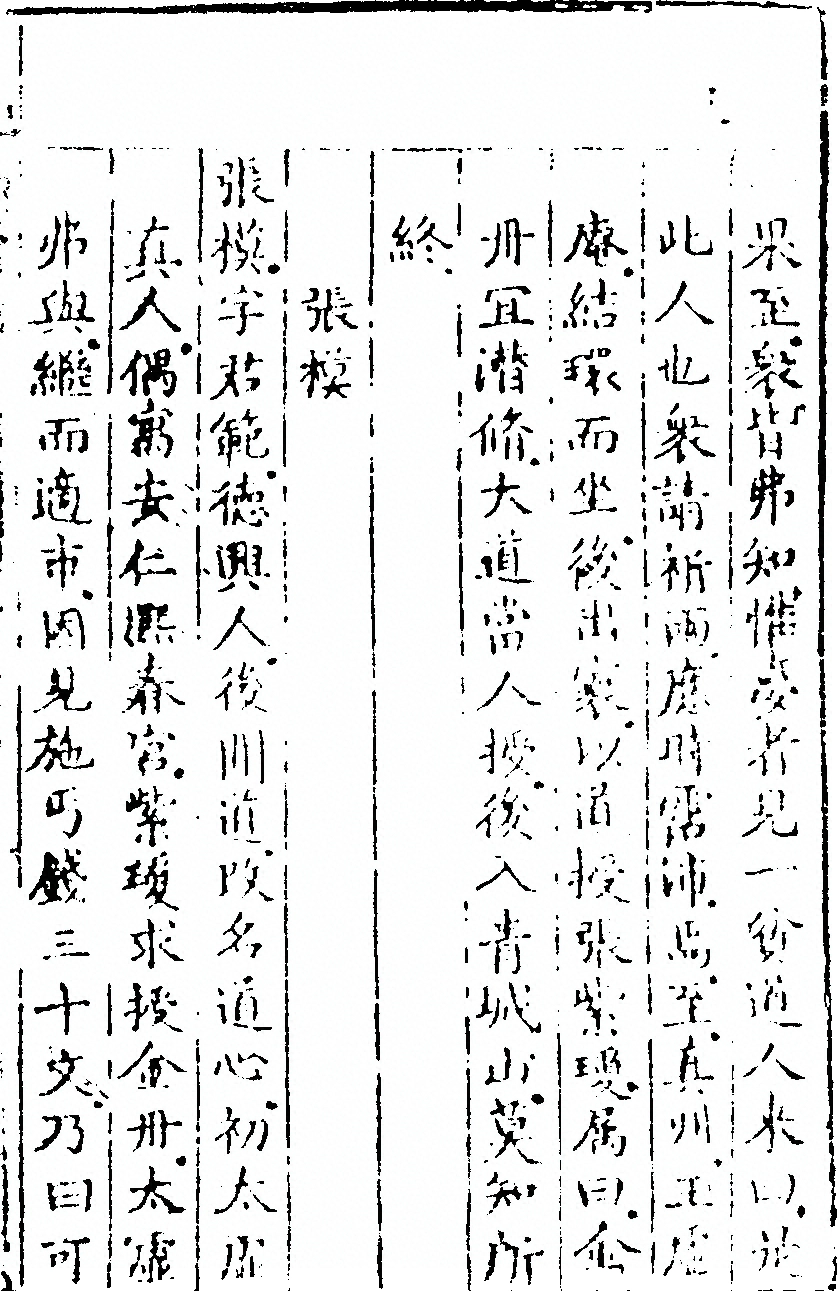 果至衆皆弗知惟愛者見一貧道人來曰施
此人也衆請祈雨應時霑沛烏至真州玉虛
庵結環而坐後出寒以道授張紫瓊属曰金
丹宜潛修大道當人授後入青城山莫知所
終
張模
張模字君範德興人後川道改名道心初太虛
真人偶寓安仁熙春宮紫瓊求授金丹太虛
弗與繼而適市因見施丐錢三十文乃曰可